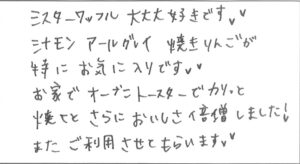 ミスターワッフル 大大大好きです♥♥
シナモン アールグレイ 焼きりんごが
特に お気に入りです♥♥
お家で オーブントースターで カリッと
焼くと さらに おいしさ倍増しました!
また ご利用 させてもらいます♥♥